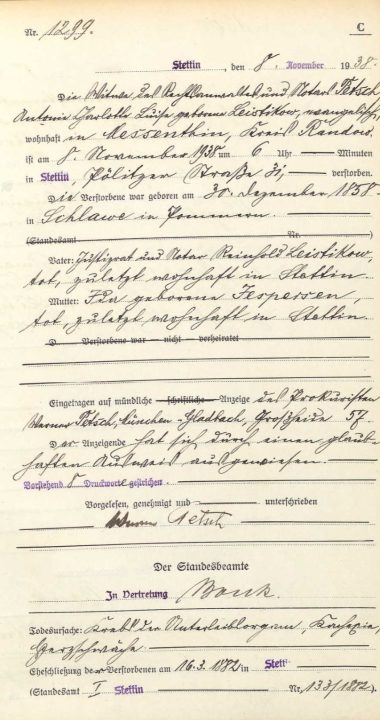 Nr. 1299.
C
Stettin, den 8. November 1938.
Die Witwe des Rechtsanwaltes und Notars Petsch
Antonie Charlotte Luise geborene Leistikow, evangelisch,
wohnhaft in Messenthin, Kreis Randow,
ist am 8. November 1938 um 6 Uhr Minuten
in Stettin, Pölitzer Straße 31, verstorben.
Die Verstorbene war geboren am 30. Dezember 1858
in Schlawe in Pommern.
(Standesamt Nr. )
Vater: Justizrat und Notar Reinhold Leistikow,
tot, zuletzt wohnhaft in Stettin.
Mutter: Ida geborene Jespersen,
tot, zuletzt wohnhaft in Stettin.
D Verstorbene war nicht verheiratet
Eingetragen auf mündliche schriftliche Anzeige des Prokuristen
Werner Petsch, München-Gladbach, Großheide 57.
Der Anzeigende hat sich durch einen glaub-
haften Ausweis ausgewiesen.
Vorstehend 8 Druckworte gestrichen.
Vorgelesen, genehmigt und unterschrieben
Werner Petsch
Der Standesbeamte
In Vertretung Bonk.
Todesursache: Krebs der Unterleiborgane, Kachexie,
Herzschwäche.
Eheschließung der Verstorbenen am 16.3.1882 in Stett
(Standesamt I Stettin Nr. 133/1882).